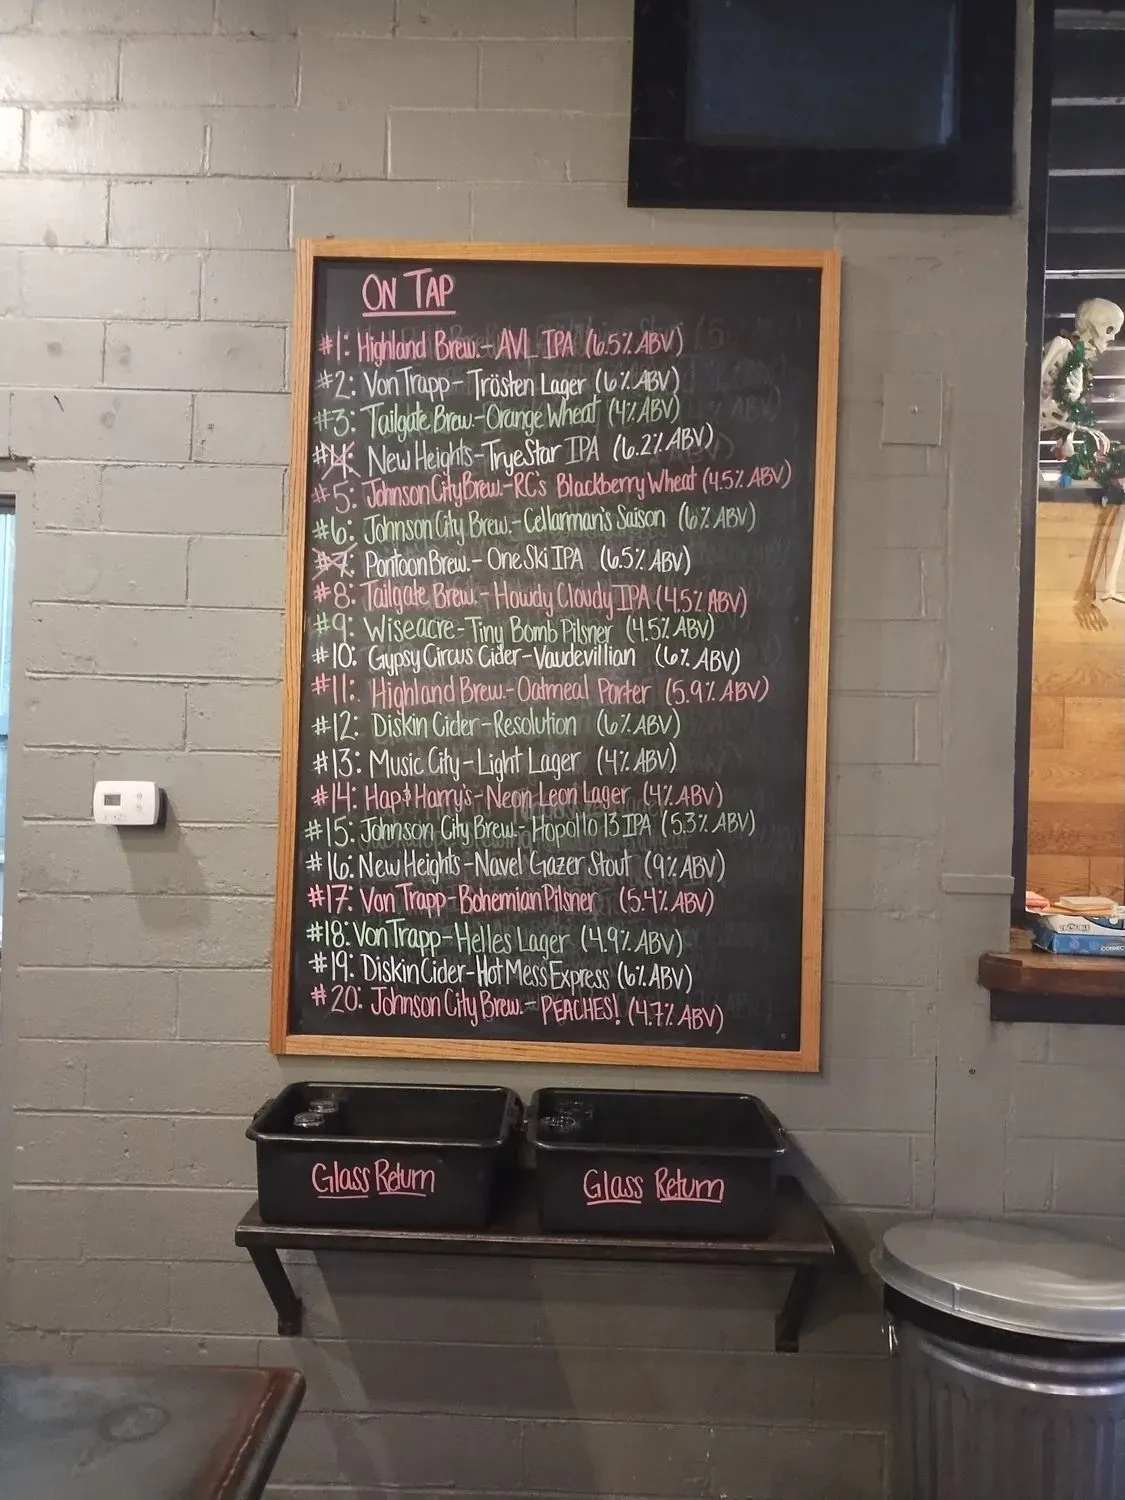 ON TAP
#1: Highland Brew.- AVL IPA (6.5% ABV)
#2: Von Trapp- Trösten Lager (6% ABV)
#3: Tailgate Brew.-Orange Wheat (4% ABV)
#4: New Heights-TryeStar IPA (6.2% ABV)
#5: Johnson City Brew.-RC's Blackberry Wheat (4.5% ABV)
#6: Johnson City Brew.-Cellarman's Saison (6% ABV)
#7: Pontoon Brew.- One Ski IPA (6.5% ABV)
#8: Tailgate Brew.- Howdy Cloudy IPA (4.5% ABV)
#9: Wiseacre-Tiny Bomb Pilsner (4.5% ABV)
#10: Gypsy Circus Cider-Vaudevillian (6% ABV)
#11: Highland Brew.-Oatmeal Porter (5.9% ABV)
#12: Diskin Cider-Resolution (6% ABV)
#13: Music City-Light Lager (4% ABV)
#14: Hap & Harry's-Neon Leon Lager (4% ABV)
#15: Johnson City Brew.- Hopollo 13 IPA (5.3% ABV)
#16: New Heights-Navel Gazer Stout (9% ABV)
#17: Von Trapp-Bohemian Pilsner (5.4% ABV)
#18: Von Trapp-Helles Lager (4.9% ABV)
#19: Diskin Cider-Hot Mess Express (6% ABV)
#20: Johnson City Brew.- PEACHES! (4.7% ABV)
Glass Return
Glass Return
TROUBLE
CONNECT